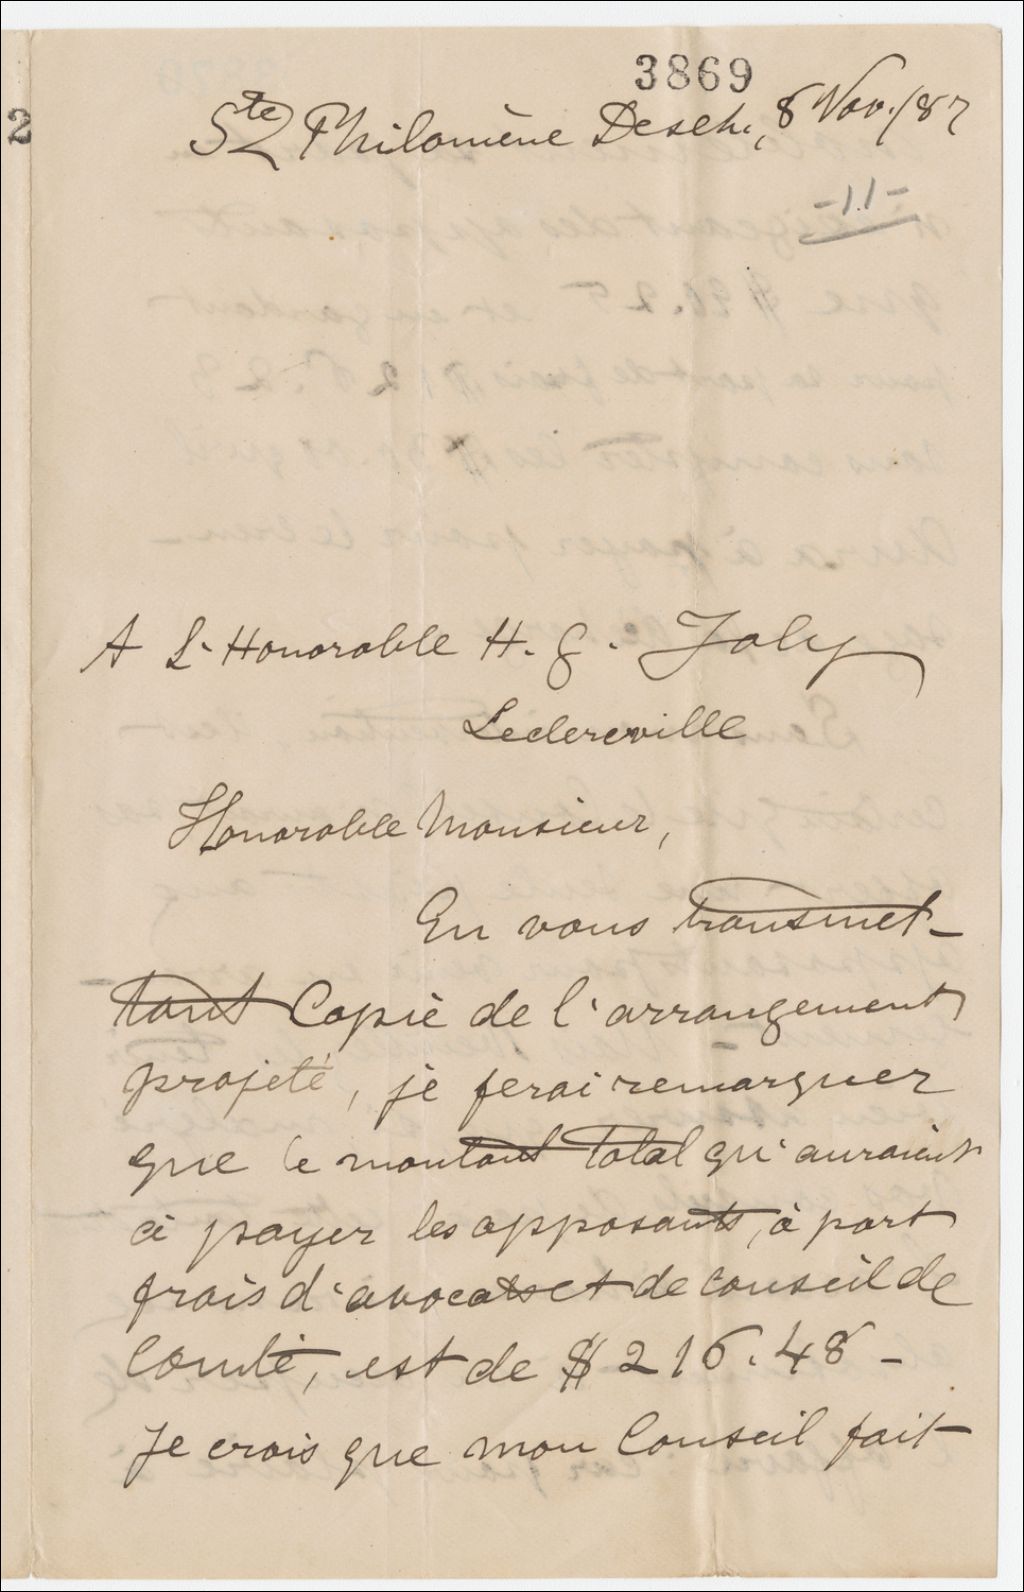 3869
2
Ste Philomène Desch., 8 Nov./87
-11-
A L'Honorable H. G. Joly
Leclercville
Honorable Monsieur,
En vous transmet-
tant Copie de l'arrangement
projeté, je ferai remarquer
que le montant total qu'auraient
à payer les opposants, à part
frais d'avocats et de conseil de
Comté, est de $216.48 -
Je crois que mon Conseil fait